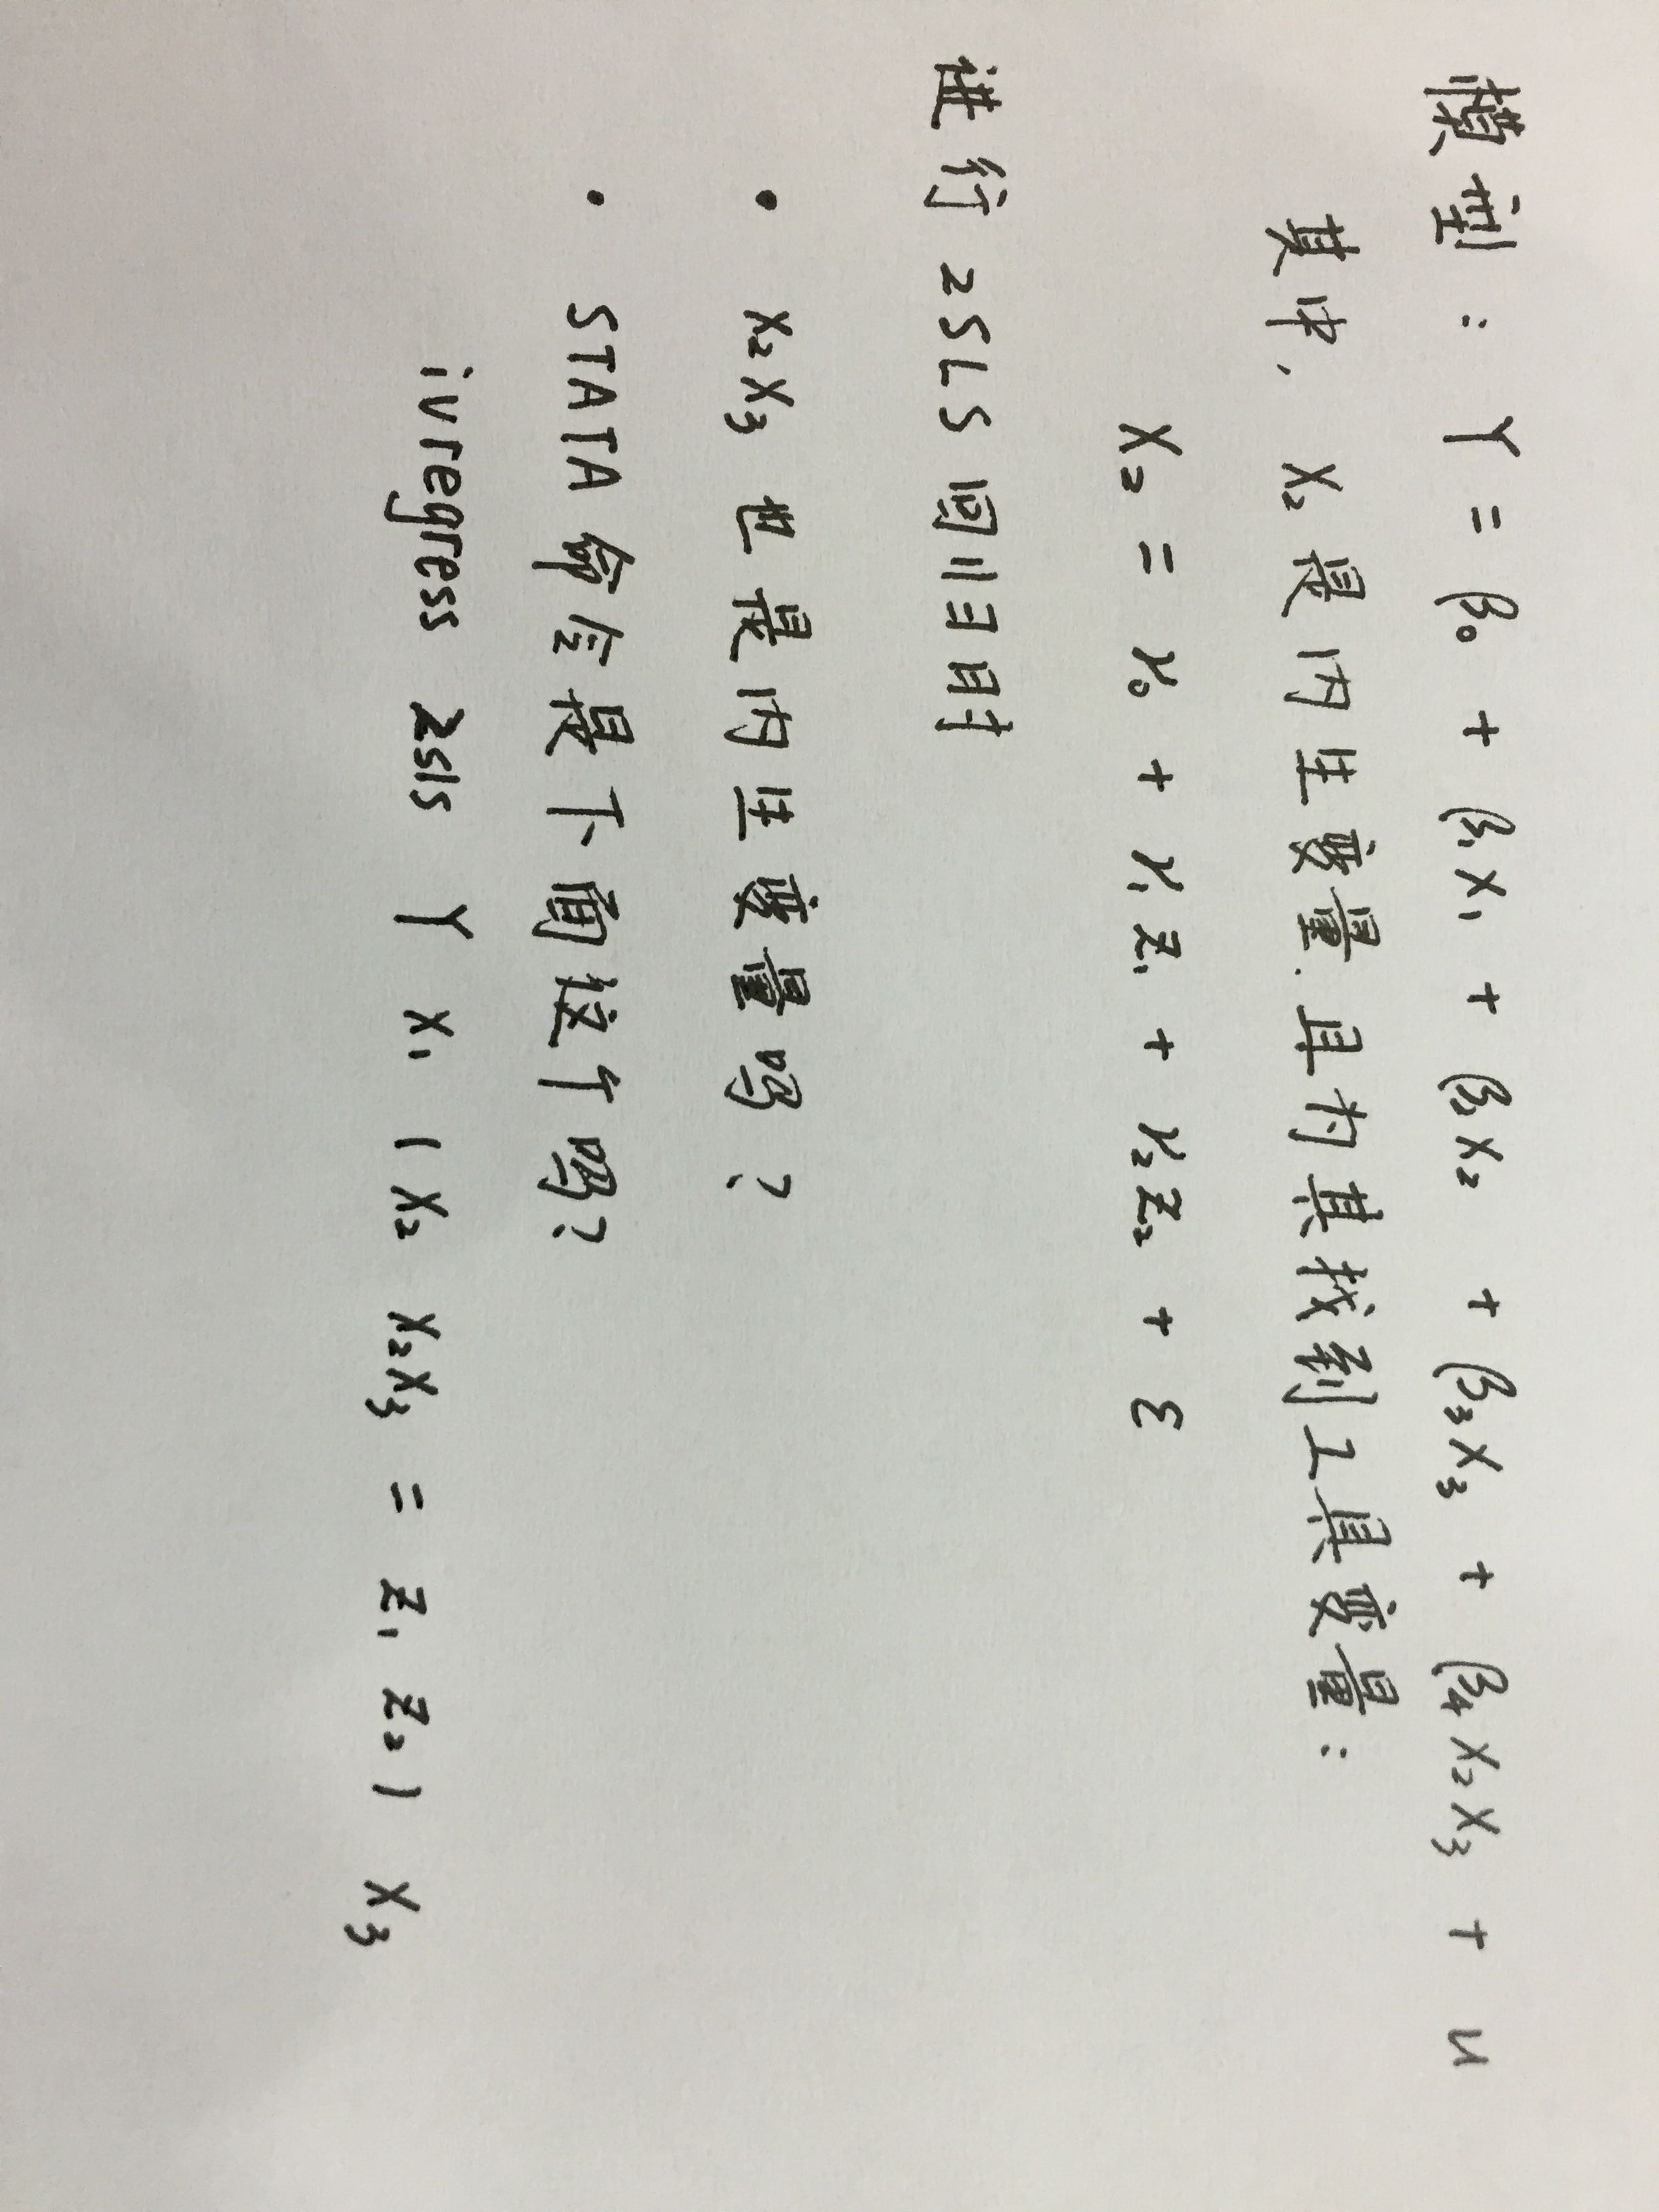 模型: Y = β₀ + β₁X₁ + β₂X₂ + β₃X₃ + β₄X₂X₃ + u
其中, X₂ 是内生变量.且为其找到工具变量:
X₂ = γ₀ + γ₁Z₁ + γ₂Z₂ + ε
进行 2SLS 回归时
• X₂X₃ 也是内生变量吗?
• STATA 命令是下面这个吗?
ivregress 2sls Y X₁ (X₂ X₂X₃ = Z₁ Z₂) X₃